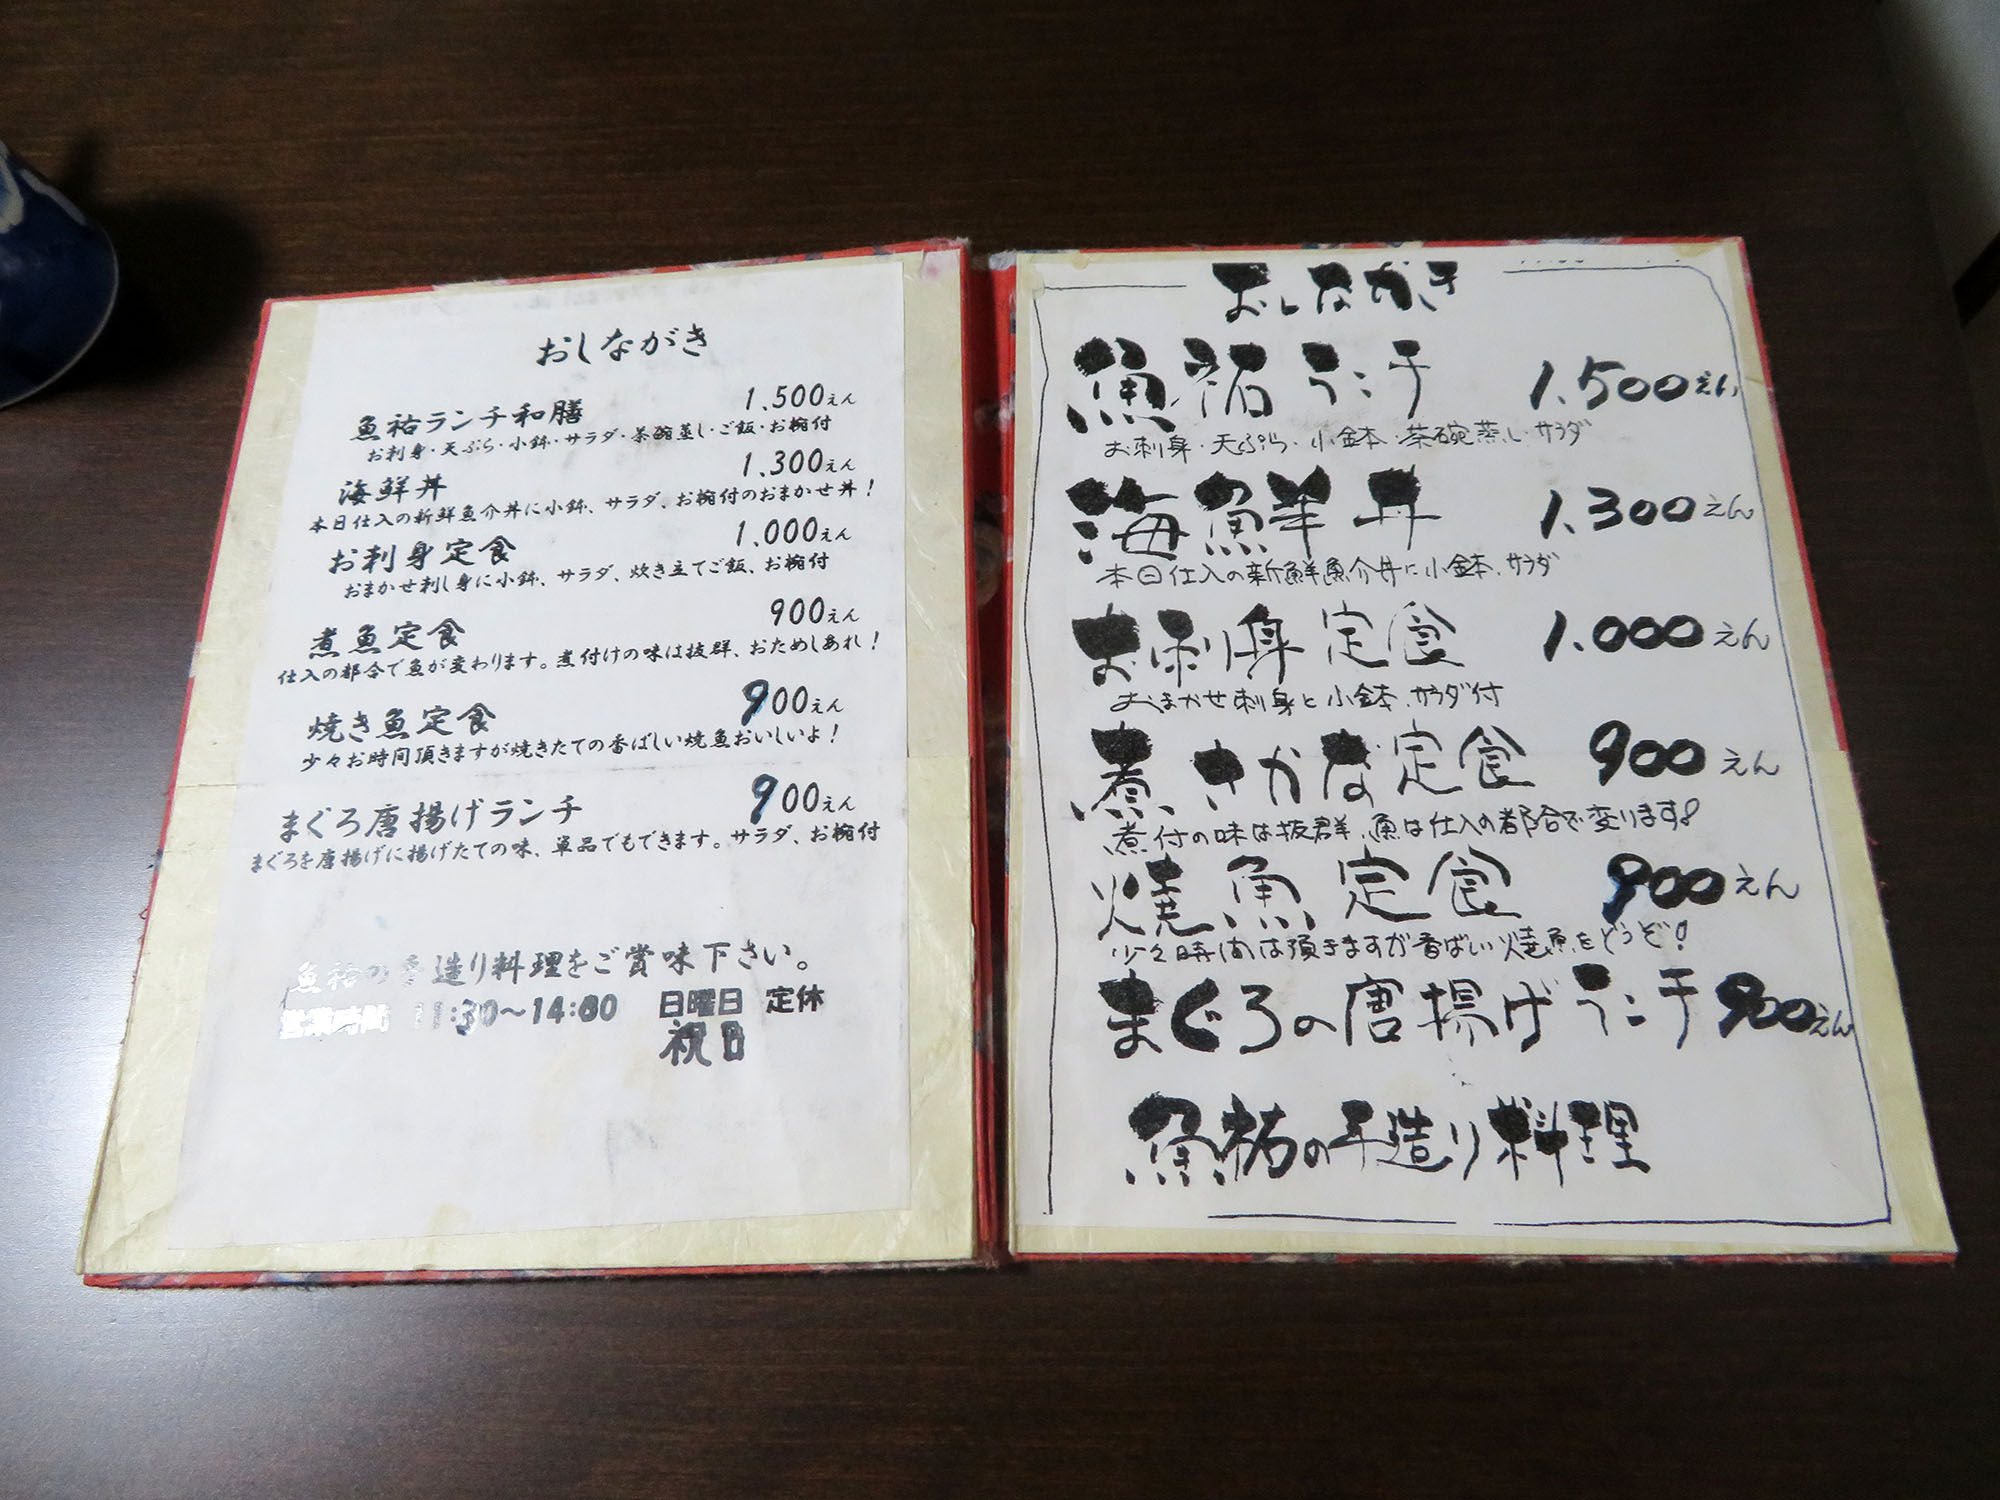 おしながき
魚祐ランチ和膳 1,500えん
お刺身・天ぷら・小鉢・サラダ・茶碗蒸し・ご飯・お椀付
海鮮丼 1,300えん
本日仕入の新鮮魚介丼に小鉢、サラダ、お椀付のおまかせ丼！
お刺身定食 1,000えん
おまかせ刺し身に小鉢、サラダ、炊き立てご飯、お椀付
煮魚定食 900えん
仕入の都合で魚が変わります。煮付けの味は抜群、おためしあれ！
焼き魚定食 900えん
少々お時間頂きますが焼きたての香ばしい焼魚おいしいよ！
まぐろ唐揚げランチ 900えん
まぐろを唐揚げに揚げたての味、単品でもできます。サラダ、お椀付
魚祐の手造り料理をご賞味下さい。
営業時間 11:30〜14:00 日曜日 定休
祝日
おしながき
魚祐ランチ 1.500えん
お刺身・天ぷら・小鉢・茶碗蒸し・サラダ
海鮮丼 1.300えん
本日仕入の新鮮魚介丼に小鉢、サラダ
お刺身定食 1.000えん
おまかせ刺身と小鉢、サラダ付
煮さかな定食 900えん
煮付の味は抜群、魚は仕入の都合で変ります！
焼魚定食 900えん
少々時間は頂きますが香ばしい焼魚をどうぞ！
まぐろの唐揚げランチ 900えん
魚祐の手造り料理